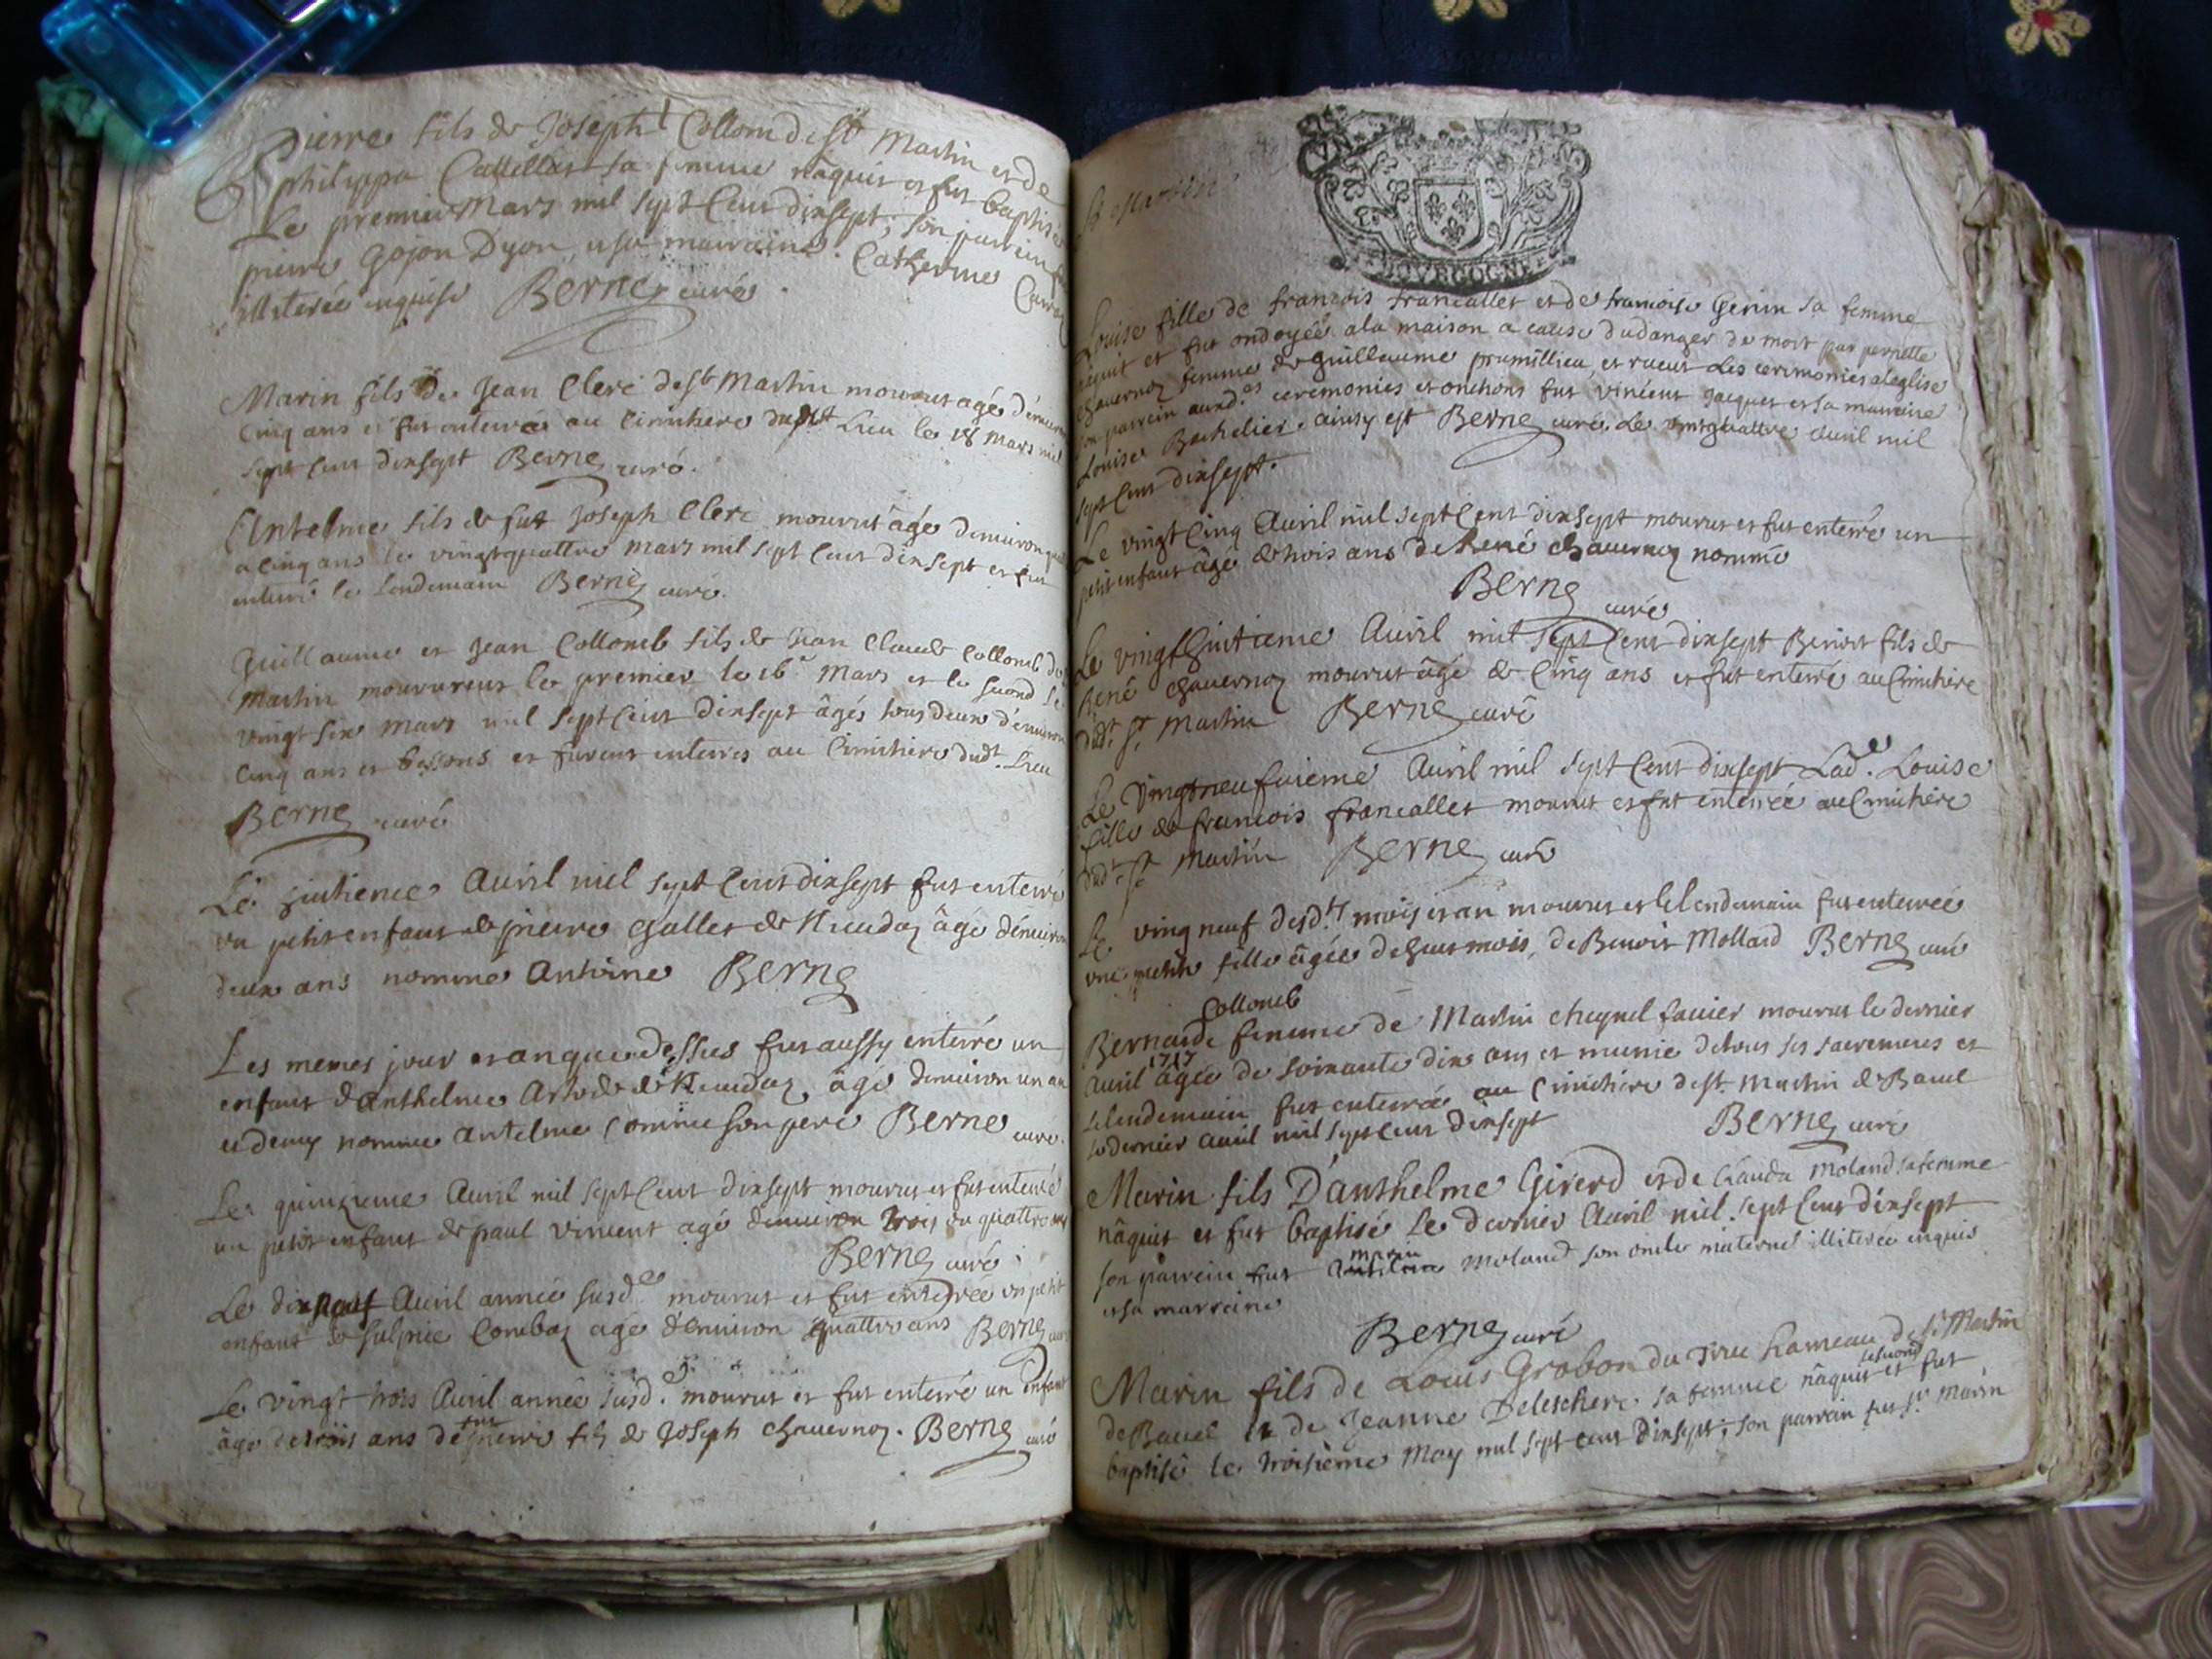 Pierre fils de Joseph Collom de st Martin et de
philippa sa femme nâquit et fut baptisé
Le premier Mars mil sept Cent dixsept, son parrein
pierre gojon Dyon, et sa marraine Catherine
illiterée enquise Berne curé
Marin fils de Jean Clerc de st Martin mourut agé d'environ
Cinq ans et fut enterré au Cimithere dudit Lieu le 18 Mars mil
sept Cent dixsept Berne curé.
Antelme fils de fut Joseph Clerc mourut âgé denviron
a Cinq ans le vingtquattre Mars mil sept Cent dixsept et fut
enterré le lendemain Berne curé.
Guillaume et Jean Collomb fils de Jean Claude Collomb de
Martin moururent le premier le 16e Mars et le second le
vingt six Mars mil sept Cent dixsept âgés tous deux d'environ
Cinq ans et bessons et furent enterres au Cimithere dudt. Lieu
Berne curé
Le huitieme Avril mil sept Cent dixsept fut enterré
un petit enfant de pierre Challet de âgé d'environ
deux ans nommé Antoine Berne
Les memes jour et an que dessus fut aussy enterré un
enfant d'Anthelme de âgé d'environ un an
et demy nommé Antelme Comme son pere Berne curé.
Le quinzieme Avril mil sept Cent dixsept mourut et fut enterré
un petit enfant de paul vincent agé d'environ trois ou quattre ans
Berne curé
Le dixneuf Avril année susd.e mourut et fut enterrée un petit
enfant de Sulpice Combaz agé d'environ quattre ans Berne curé
Le vingt trois Avril année susd.e mourut et fut enterré un enfant
âgé de trois ans de fut pierre fils de Joseph Chavernoz. Berne curé
BOURGOGNE
Louise fille de francois francallet et de francoise Genin sa femme
nâquit et fut ondoyée a la maison a cause du danger de mort par pernette
Chavernoz femme de Guillaume prumillieu, et receut les ceremonies a leglise
son parrein auxd.es ceremonies et onchons fut vincent Jacquet et sa marreine
Louise Bachelier. ainsy est Berne curé. Le vingtquattre Avril mil
sept Cent dixsept.
Le vingt Cinq Avril mil sept Cent dixsept mourut et fut enterré un
petit enfant âgé de trois ans de René Chavernoz nommé
Berne curé
Le vingt huitieme Avril mil sept Cent dixsept Benoit fils de
René Chavernoz mourut âgé de Cinq ans et fut enterré au Cimithere
dudt. st. Martin Berne curé
Le vingtneufvieme Avril mil sept Cent dixsept Lad.e Louise
fille de francois francallet mourut et fut enterrée au Cimithere
dudt. st. Martin Berne curé
Le ving neuf desd.ts mois et an mourut et le lendemain fut enterrée
une petite fille âgée de huit mois, de Benoit Mollard Berne curé
Collomb
Bernarde femme de Martin favier mourut le dernier
Avril 1717 âgée de soixante dix ans et munie de tous ses sacremens et
le lendemain fut enterrée au Cimithere de st. Martin de Bavel
le dernier avril mil sept Cent dixsept Berne curé
Marin fils D'anthelme Girerd et de Clauda Moland sa femme
nâquit et fut baptisé le dernier Avril mil sept Cent dixsept
son parrein fut Marin Moland son oncle maternel illiteré enquis
et sa marreine
Berne curé
Marin fils de Louis Grobon du hameau de st. Martin
de Bavel et de Jeanne sa femme nâquit le second et fut
baptisé le troisieme May mil sept cent dixsept, son parrain fut sr. Marin